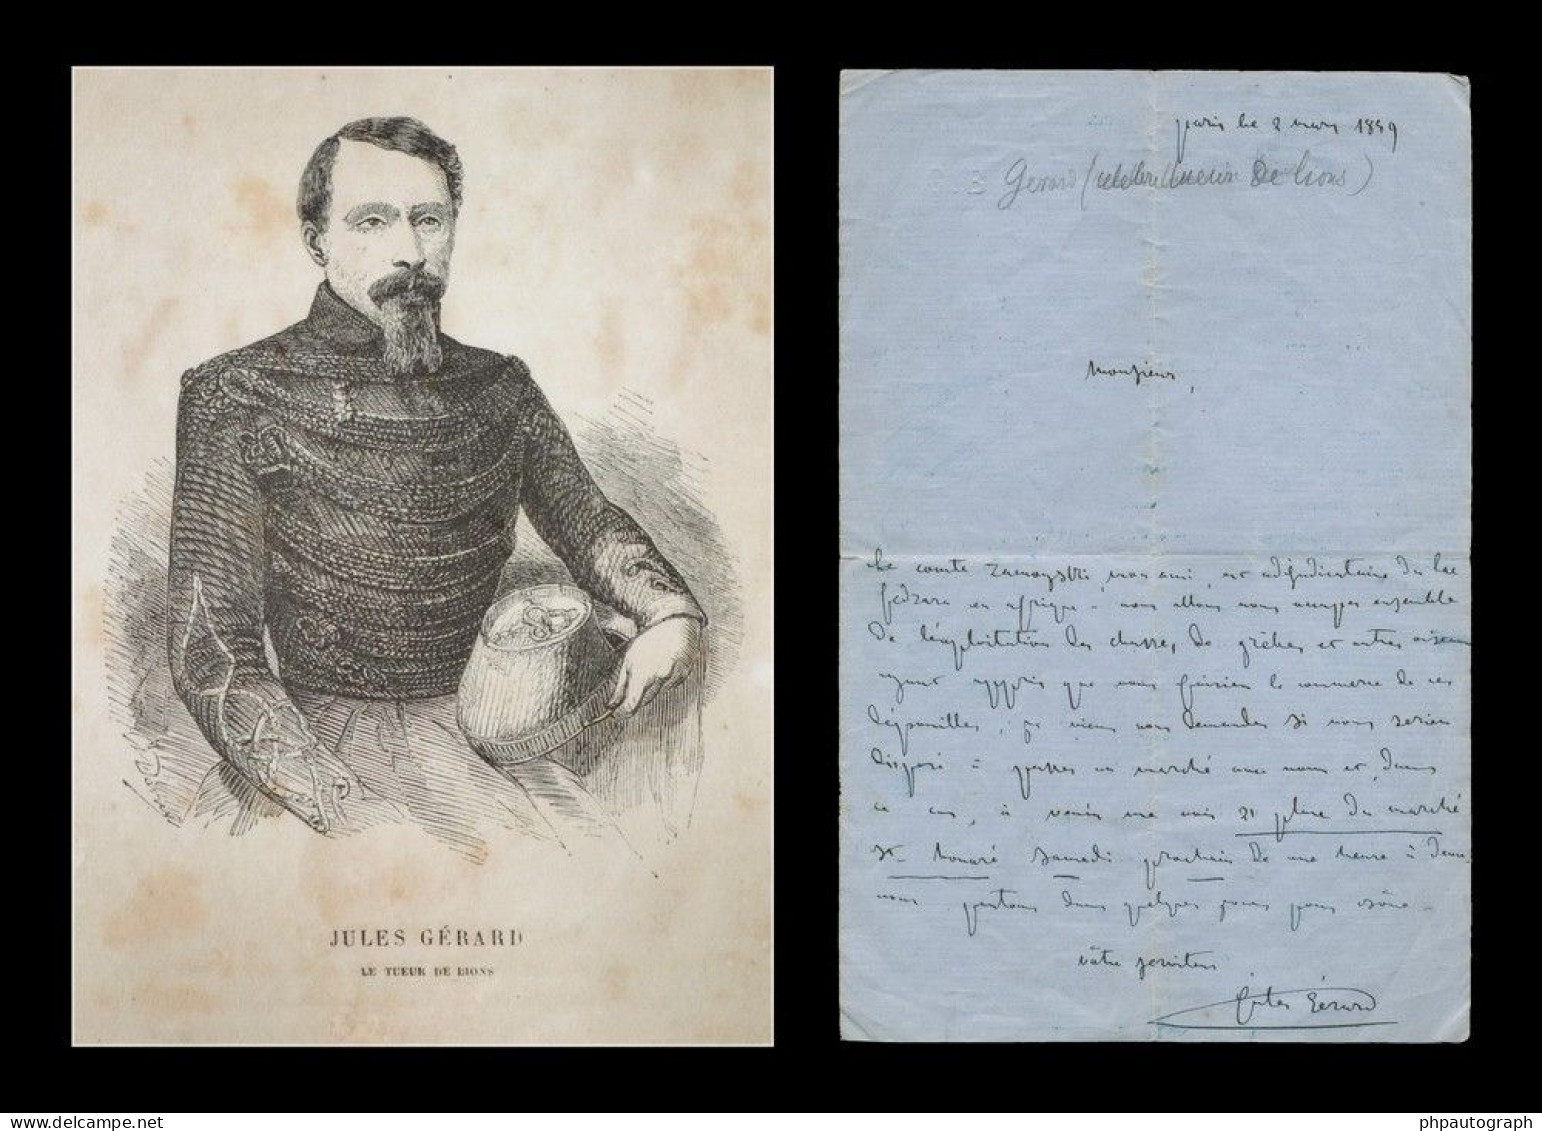 JULES GÉRARD
LE TUEUR DE LIONS
paris le 2 mars 1859
Gerard (célèbre tueur De lions)
Monsieur,
le comte Zamoyski, mon ami, est adjudicataire du lac
fedzara en afrique - nous allons nous occuper ensemble
De l'exploitation des chasses, de grèbes et autres oiseaux
ayant appris que vous faisiez le commerce de ces
dépouilles, je viens vous demander si vous seriez
disposé à passer un marché avec nous et, dans
ce cas, à venir me voir 21 place du marché
st honoré samedi prochain de une heure à deux
nous partons dans quelques jours pour
vôtre serviteur
Jules Gérard
delcampe.net
phpautograph